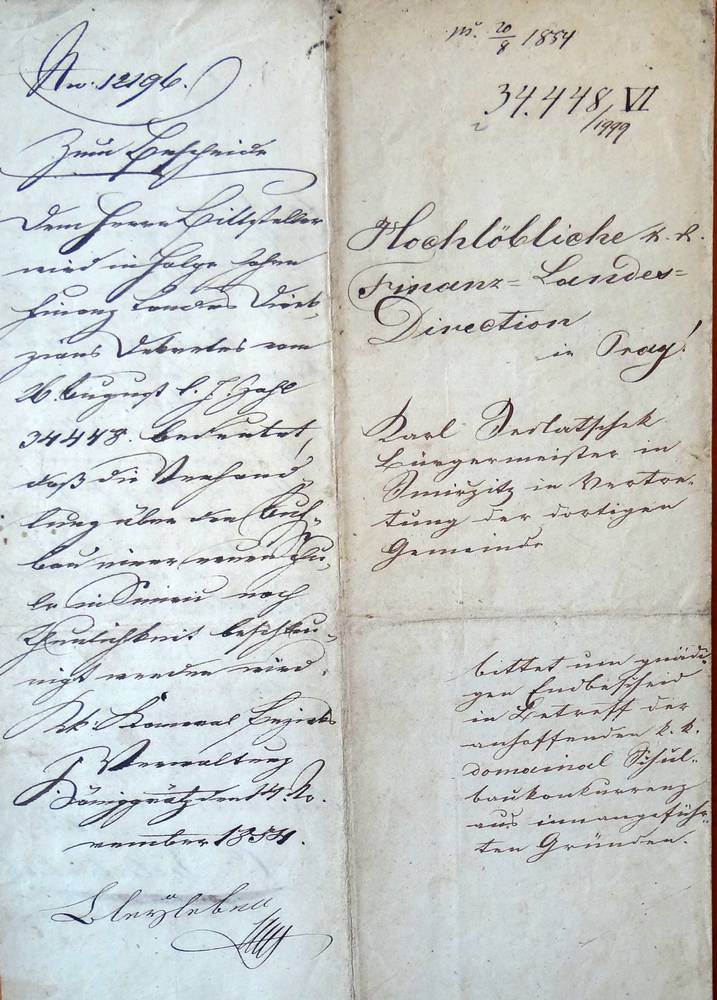 No. 12196.
Zum Bescheide
Dem Herrn Bittsteller
wird in Folge hohen
Finanz Landes Direk-
zions Dekretes vom
26 August l. J. Zahl
34448. bedeutet,
daß die Verhand-
lung über den
bau einer neuen Schu-
le in Smiřic nach
Thunlichkeit beschleu-
nigt werden wird.
K.k. Kameral Bezirks
Verwaltung
Königgrätz den 14. No-
vember 1854.
20/8 1854
34.448/1999 VI
Hochlöbliche k. k.
Finanz=Landes=
Direction
in Prag!
Karl
Bürgermeister in
Smirzitz in Vertre-
tung der dortigen
Gemeinde
bittet um gnädi-
gen Endbescheid
in Betreff der
anhoffenden k. k.
domainal Schul-
baukonkurrenz
aus innangeführ-
ten Gründen.